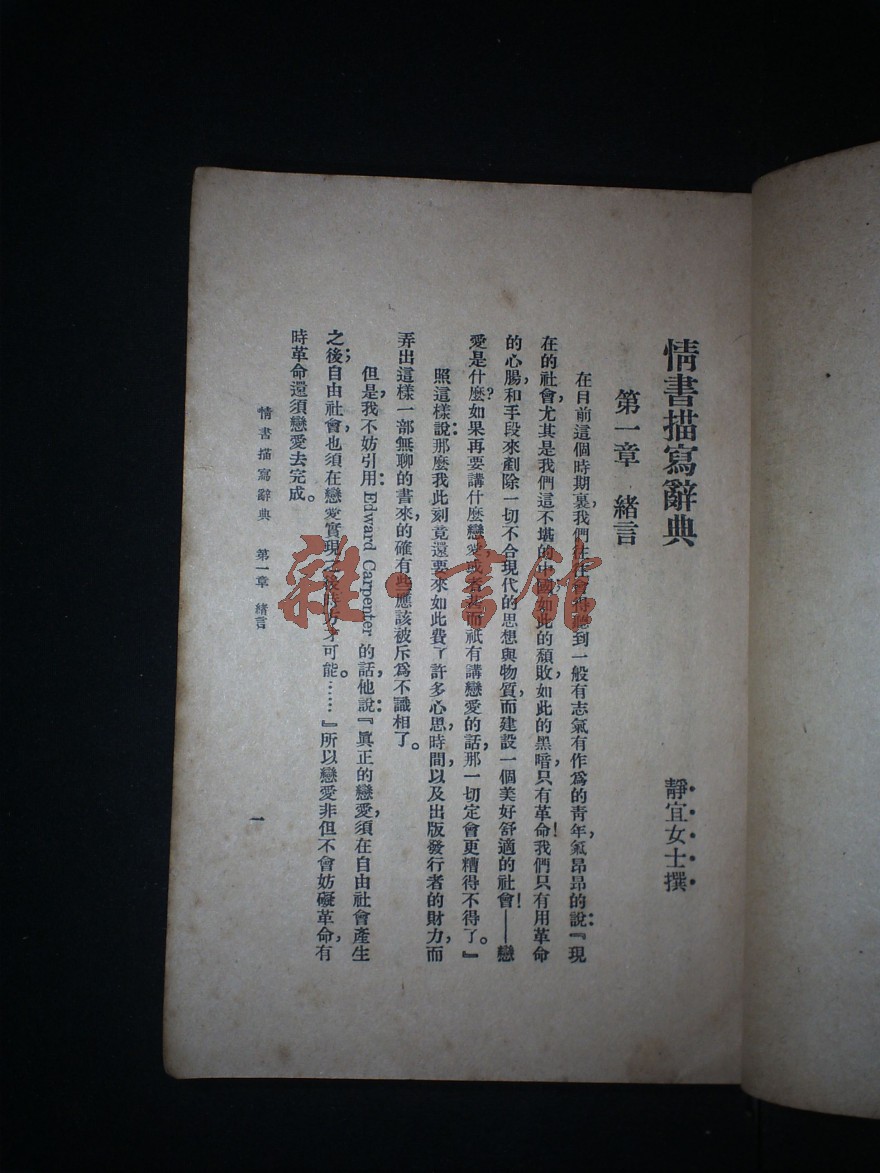 情書描寫辭典
靜宜女士撰
第一章 緒言
在目前這個時期裏,我們往往會得聽到一般有志氣有作爲的青年,氣昂昂的說:『現
在的社會,尤其是我們這不堪的中國,如此的頹敗,如此的黑暗,只有革命!我們只有用革命
的心腸和手段來剷除一切不合現代的思想與物質,而建設一個美好舒適的社會!——戀
愛是什麼?如果再要講什麼戀愛,或者甚而祇有講戀愛的話,那一切定會更糟得不得了。』
照這樣說:那麼我此刻竟還要來如此費了許多心思,時間,以及出版發行者的財力,而
弄出這樣一部無聊的書來,的確有些應該被斥爲不識相了。
但是,我不妨引用:Edward Carpenter 的話,他說:『眞正的戀愛,須在自由社會產生
之後;自由社會,也須在戀愛實現之後時方才可能。……』所以戀愛非但不會妨礙革命,有
時革命還須戀愛去完成。
情書描寫辭典 第一章 緒言
一
雜·書館